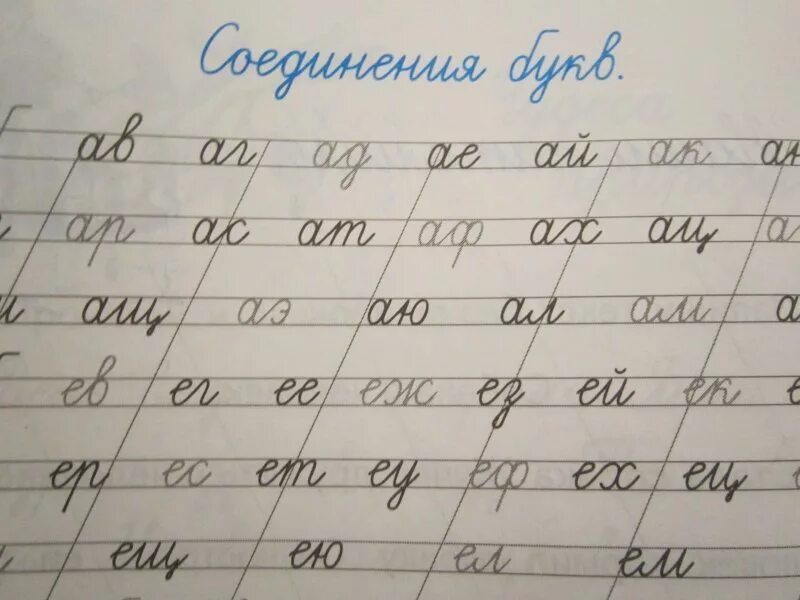 Соединения букв.
ав аг ад ае ай ак
ар ас ат аф ах ац
ащ аэ аю ал ам
ев ег ее еж ез ей ек
ер ес ет еу еф ех ец
ещ ею ел ем